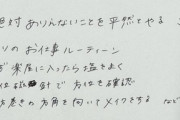 絶対ありえないことを平然とやる
りのお仕事ルーティーン
ず楽屋に入ったら塩をよく
位磁針で方位を確認
方巻きの方角を向いてメイクをする など